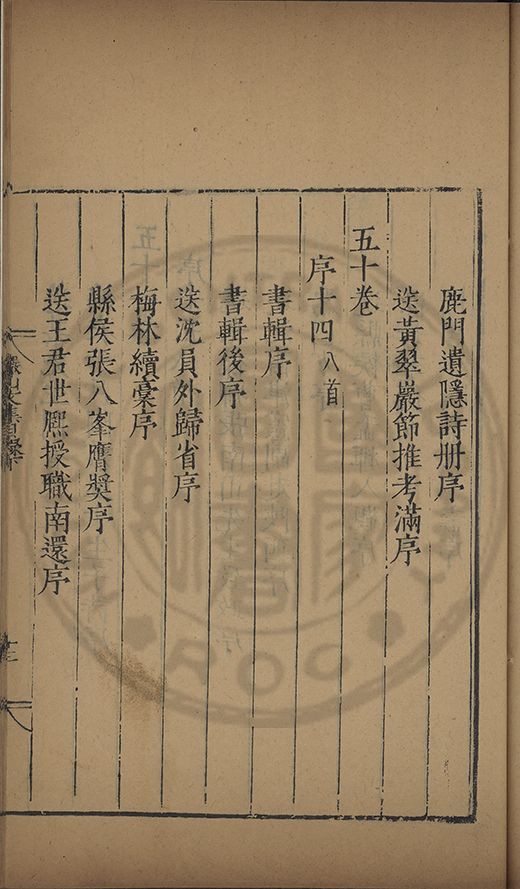 鹿門遺隱詩册序
送黃翠巖節推考滿序
五十卷
序十四 八首
書輯序
書輯後序
送沈員外歸省序
梅林續藁序
縣侯張八峯膺獎序
送王君世熈授職南還序